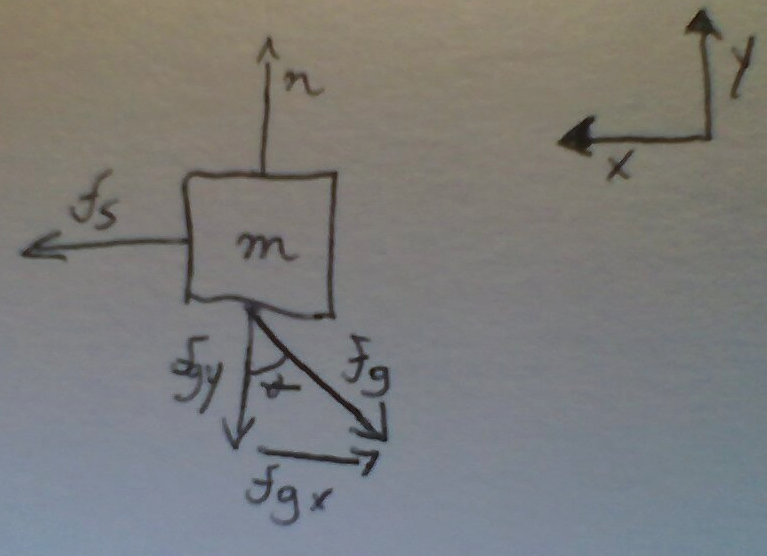 n
y
x
fs
m
fgy
α
fg
fgx